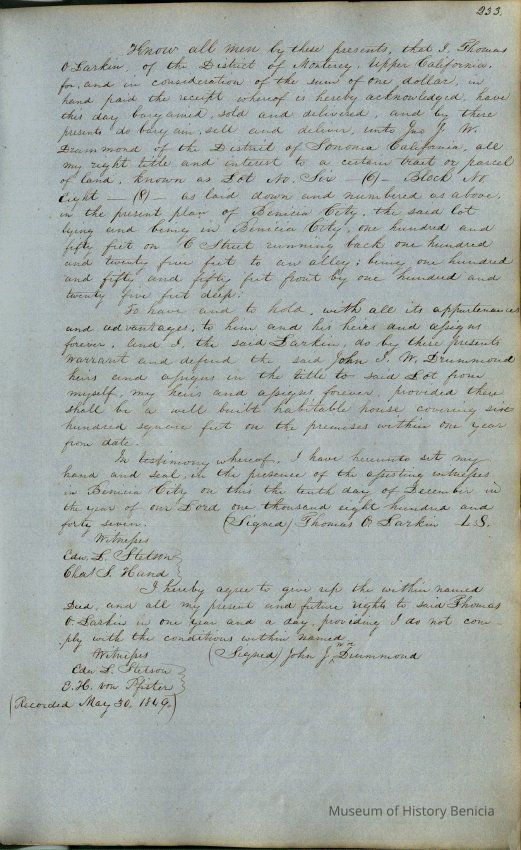 233.
Know all men by these presents, that I, Thomas
O Larkin of the District of Monterey, Upper California,
for, and in consideration of the sum of one dollar, in
hand paid the receipt whereof is hereby acknowledged, have
this day bargained, sold and delivered, and by these
presents do bargain, sell and deliver, unto Jno J. W.
Drummond of the District of Sonoma California, all
my right title and interest to a certain tract or parcel
of land, known as Lot No. Six — (6) — Block No
Eight — (8) — as laid down and numbered as above,
in the present plan of Benicia City, the said lot
lying and being in Benicia City, one hundred and
fifty feet on C Street running back one hundred
and twenty five feet to an alley; being one hundred
and fifty and fifty feet front by one hundred and
twenty five feet deep:
To have and to hold, with all its appurtenances
and advantages, to him and his heirs and assigns
forever, and I, the said Larkin, do by these presents
warrant and defend the said John J. W. Drummond
heirs and assigns in the title to said Lot from
myself, my heirs and assigns forever, provided there
shall be a well built habitable house covering six
hundred square feet on the premises within one year
from date.
In testimony whereof, I have hereunto set my
hand and seal, in the presence of the attesting witnesses
in Benicia City on this the tenth day of December in
the year of our Lord one thousand eight hundred and
forty seven. (Signed) Thomas O. Larkin L.S.
Witnesses
Edw. L. Stetson
Chas. S. Hand
I hereby agree to give up the within named
Deed, and all my present and future rights to said Thomas
O. Larkin in one year and a day, providing I do not com-
ply with the conditions within named
Witnesses (Signed) John J. Wm Drummond
Edw L. Stetson
E. H. von Pfister
(Recorded May 30, 1849)
Museum of History Benicia